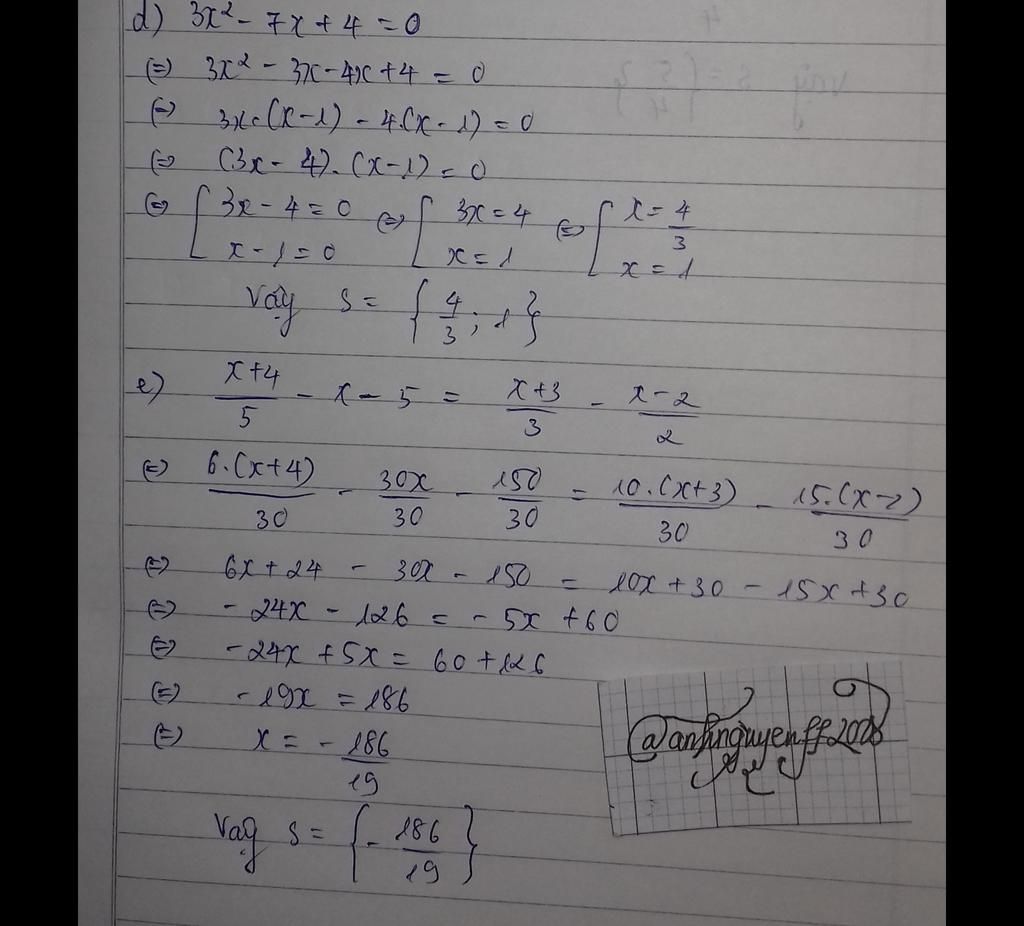 d) 3x² - 7x + 4 = 0
(=) 3x² - 3x - 4x + 4 = 0
(=) 3x.(x-1) - 4.(x-1) = 0
(=) (3x - 4).(x-1) = 0
(=) [ 3x - 4 = 0 (=) [ 3x = 4 (=) [ x = 4/3
x - 1 = 0 x = 1 x = 1
Vậy S = { 4/3 ; 1 }
e) (x+4)/5 - x - 5 = (x+3)/3 - (x-2)/2
(=) 6.(x+4)/30 - 30x/30 - 150/30 = 10.(x+3)/30 - 15.(x-2)/30
(=) 6x + 24 - 30x - 150 = 10x + 30 - 15x + 30
(=) - 24x - 126 = - 5x + 60
(=) - 24x + 5x = 60 + 126
(=) - 19x = 186
(=) x = - 186/19
Vậy S = { - 186/19 }
@anhnguyenff2008